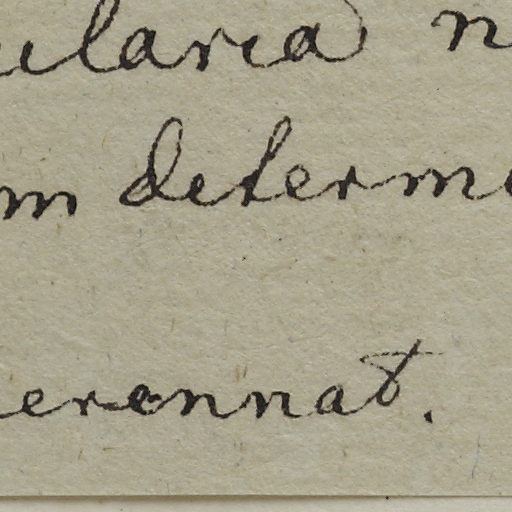 ularia n
m determi
erennat.